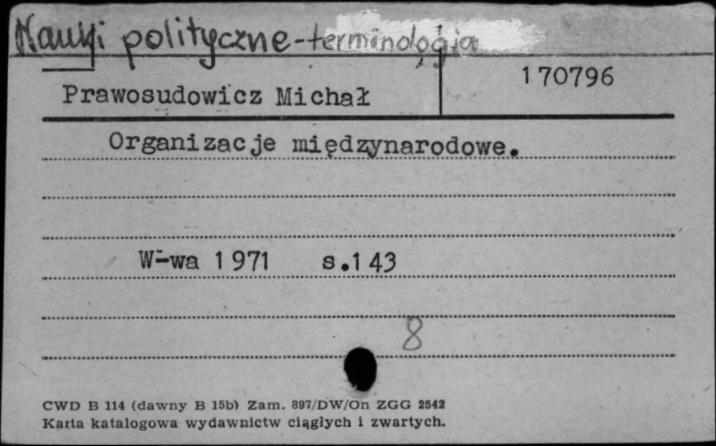 Nauki polityczne-terminologia
170796
Prawosudowicz Michał
Organizacje międzynarodowe.
W-wa 1971 s.143
8
CWD B 114 (dawny B 15b) Zam. 897/DW/On ZGG 2542
Karta katalogowa wydawnictw ciągłych i zwartych.